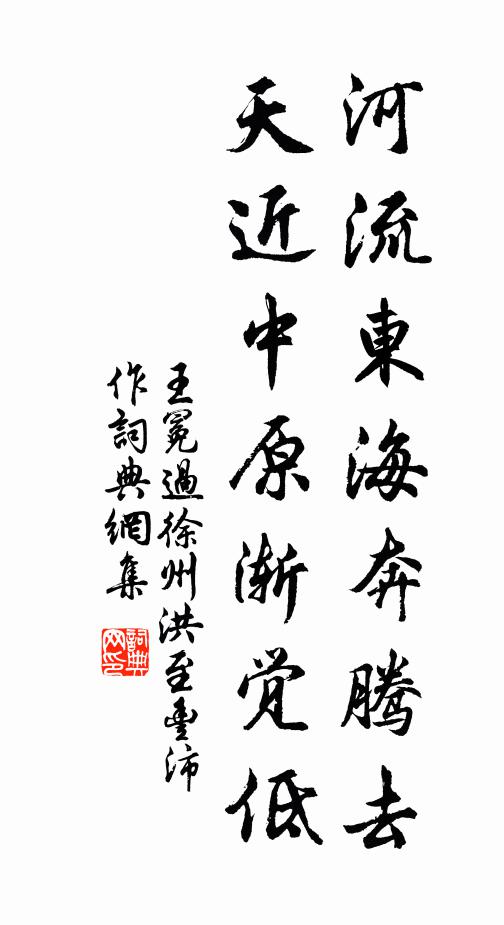 河流東海奔騰去
天近中原漸覚低
王冕過徐州洪至豊沛
作詞典網集
詞典
网印